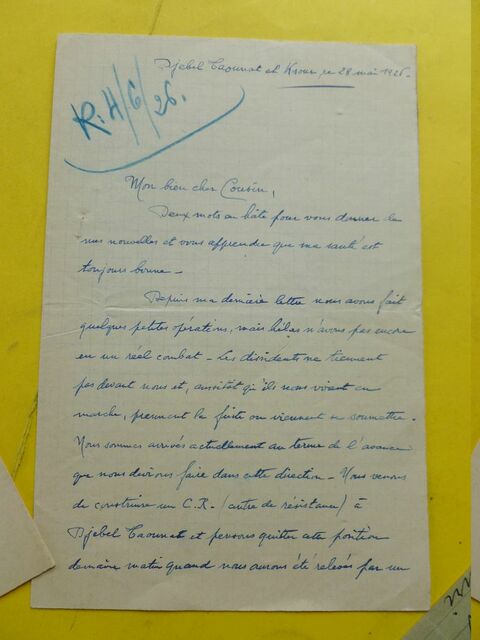 Djebel Taounat et Krour, le 28 mai 1926.
R. 4/6/26.
Mon bien cher Cousin,
Deux mots en hâte pour vous donner de
mes nouvelles et vous apprendre que ma santé est
toujours bonne –
Depuis ma dernière lettre nous avons fait
quelques petites opérations, mais hélas n'avons pas encore
eu un réel combat – Les dissidents ne tiennent
pas devant nous et, aussitôt qu'ils nous voient en
marche, prennent la fuite ou viennent se soumettre.
Nous sommes arrivés actuellement au terme de l'avance
que nous devions faire dans cette direction – Nous venons
de construire un C.R. (centre de résistance) à
Djebel Taounat et pensons quitter cette position
demain matin quand nous aurons été relevés par un